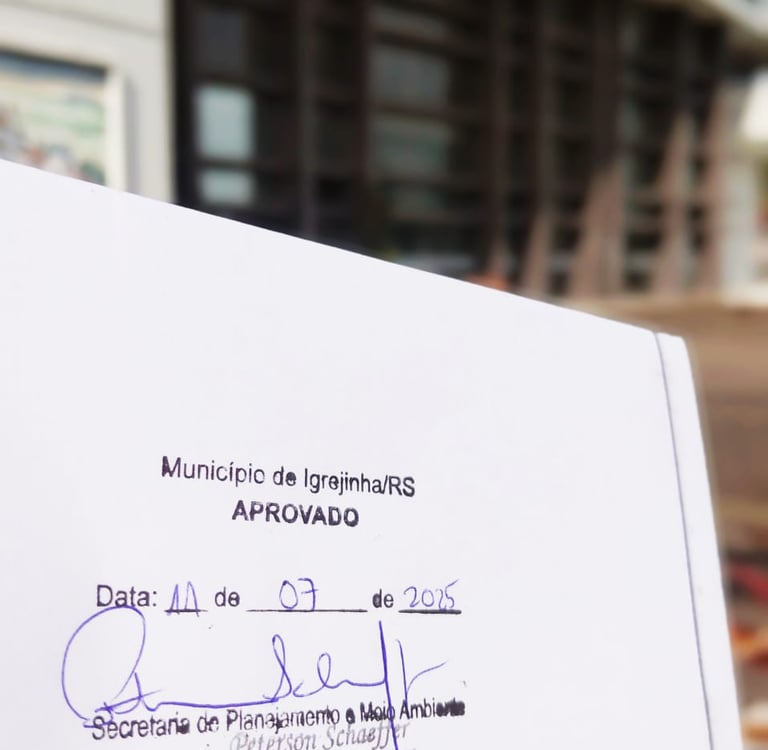 Município de Igrejinha/RS
APROVADO
Data: 11 de 07 de 2025
Secretaria de Planejamento e Meio Ambiente
Peterson Schaeffer